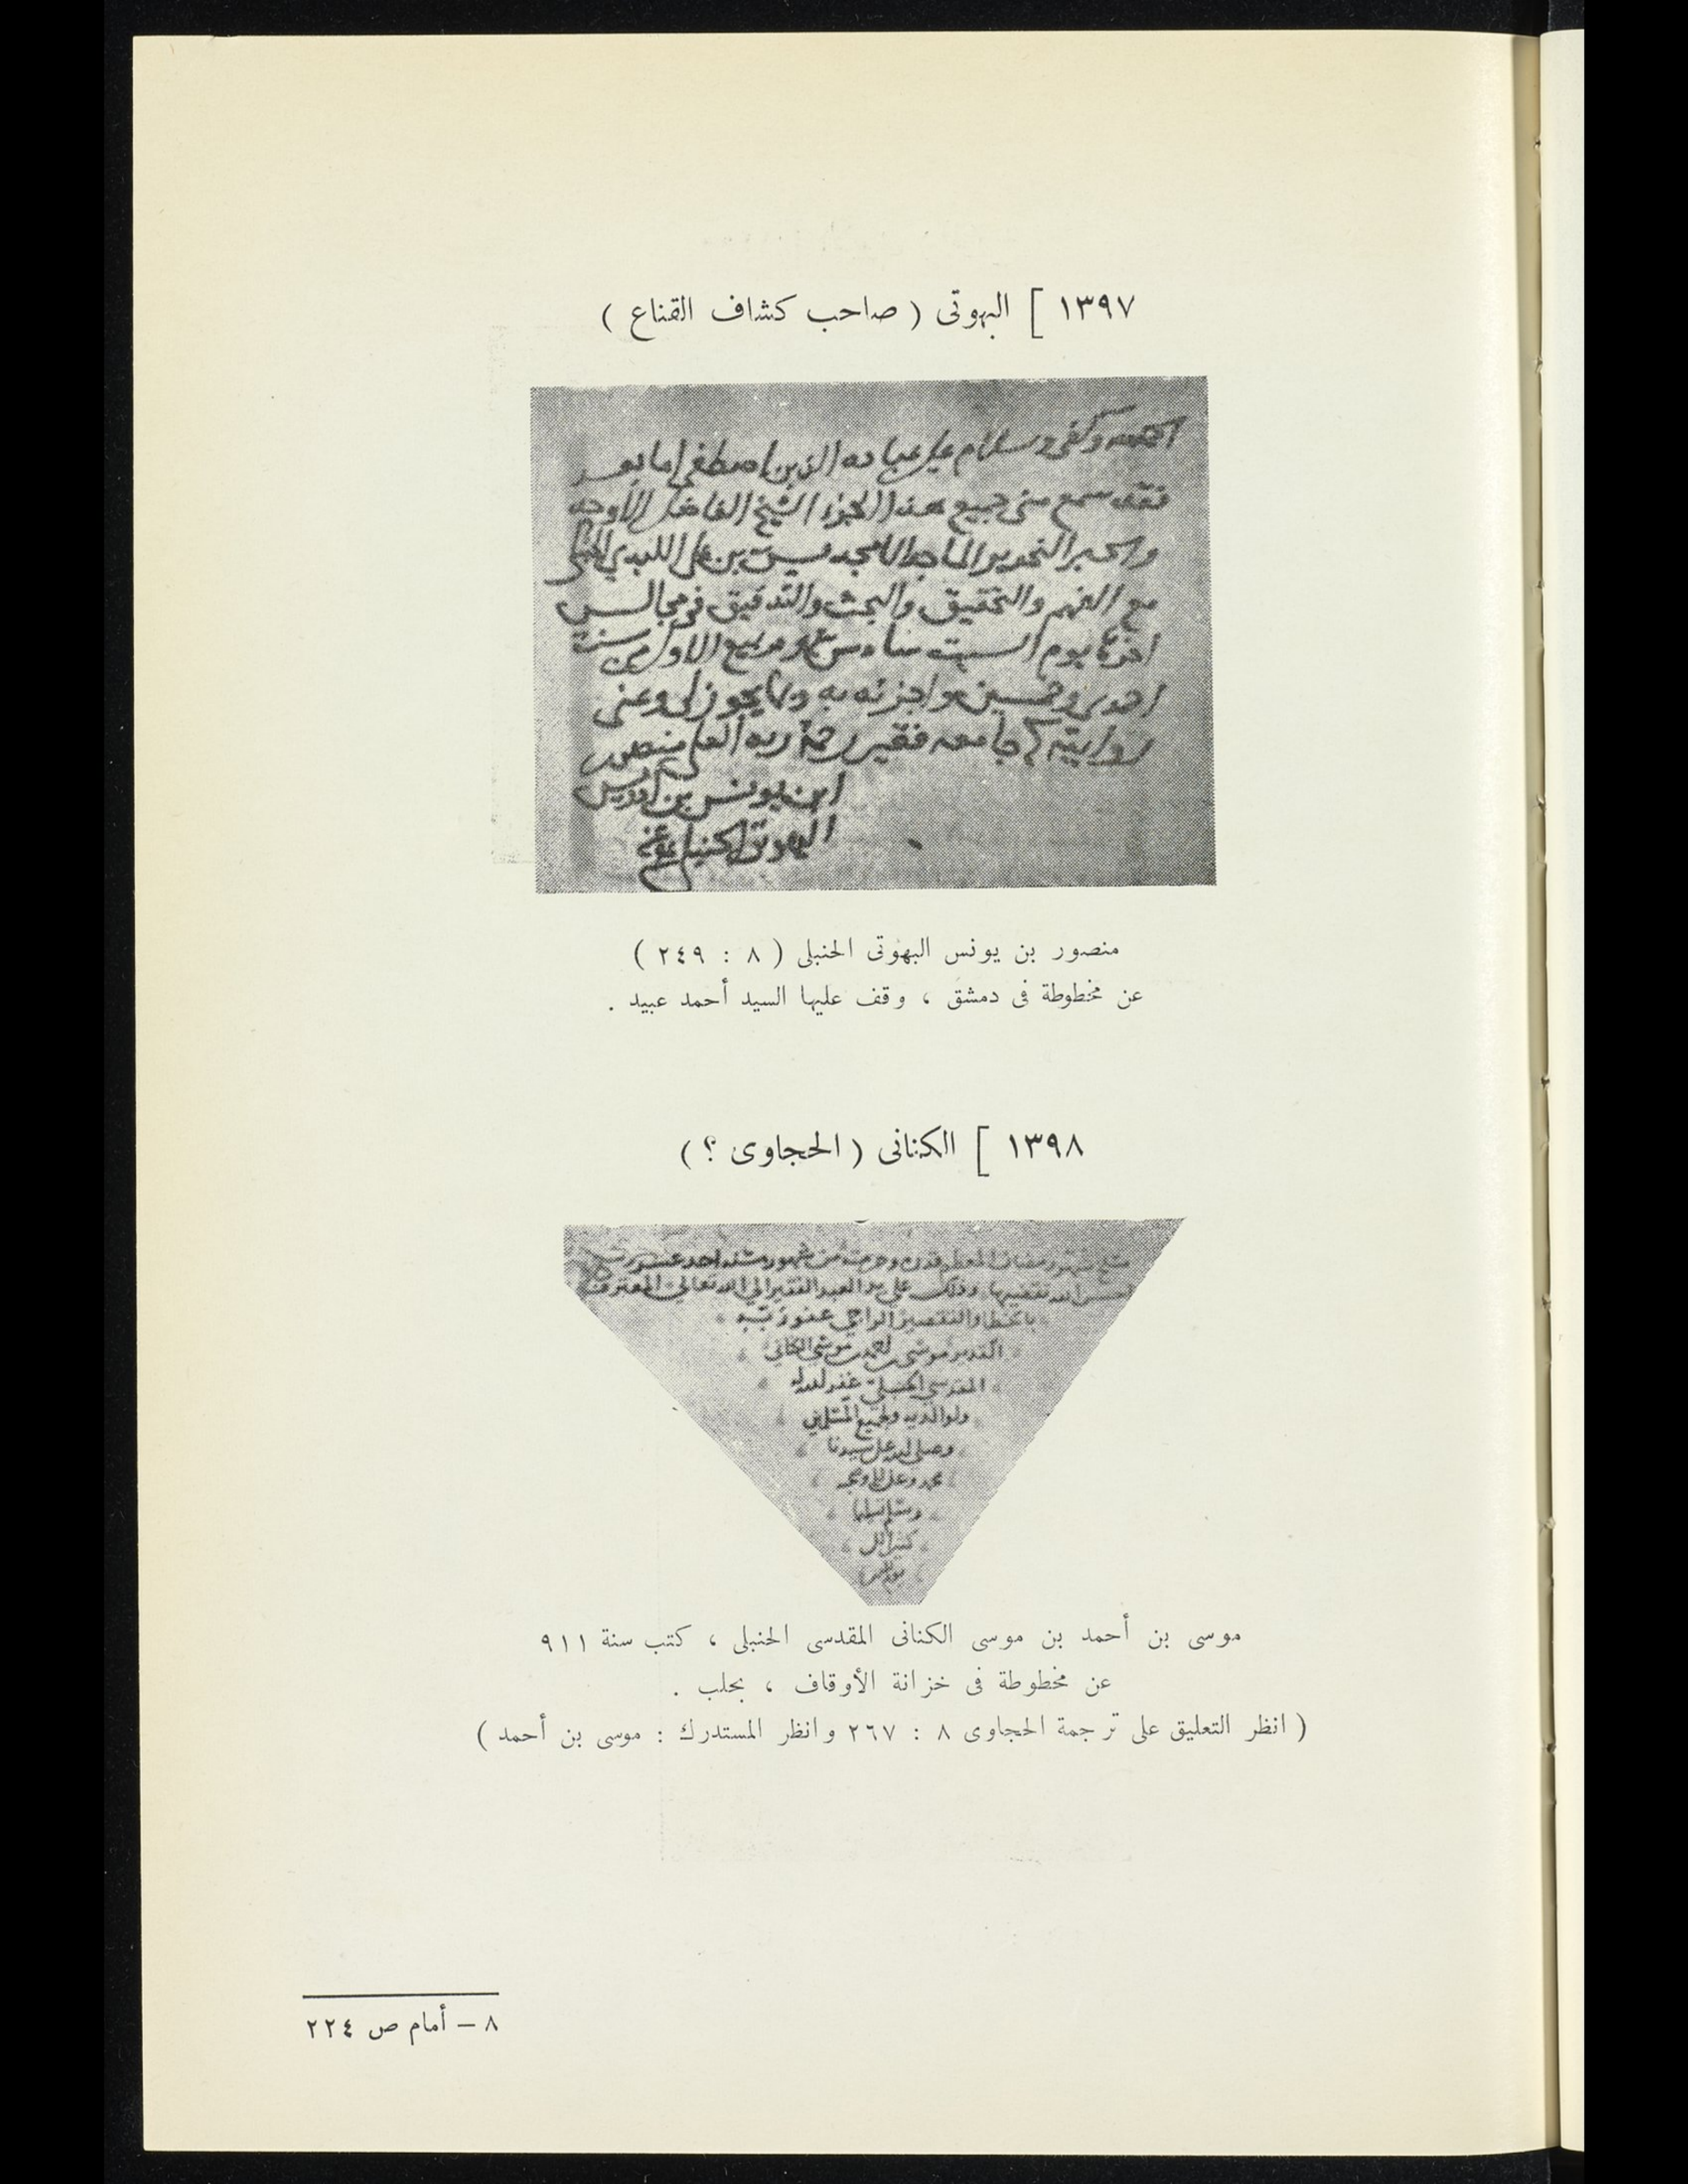 ١٣٩٧ [ البهوتى ( صاحب كشاف القناع )
وكفى وسلام على عباده الذين اصطفى اما بعد
فقد سمع منى جميع هذا الجزء الشيخ الفاضل الأوحد
مع الفهم والتحقيق والبحث والتدقيق فى مجالس
اخرها يوم السبت سادس ربيع الاول من سنة
احدى وخمسين واجزته به وبما يجوز لى وعنى
روايته جامعه فقير رحمة ربه العلى منصور
ابن يونس بن ادريس
البهوتى الحنبلى عفى عنه
منصور بن يونس البهوتى الحنبلى ( ٨ : ٢٤٩ )
عن مخطوطة فى دمشق ، وقف عليها السيد أحمد عبيد .
١٣٩٨ [ الكنانى ( الحجاوى ؟ )
شهر رمضان المعظم قدره وحرمته من شهور سنة احدى عشر
وذلك على يد العبد الفقير الى الله تعالى المعترف
بالخطا والتقصير الراجى عفو ربه
القدير موسى بن احمد بن موسى الكنانى
المقدسى الحنبلى غفر الله له
ولوالديه ولجميع المسلمين
وصلى الله على سيدنا
محمد وعلى اله وصحبه
وسلم تسليما
موسى بن أحمد بن موسى الكنانى المقدسى الحنبلى ، كتب سنة ٩١١
عن مخطوطة فى خزانة الأوقاف ، بحلب .
( انظر التعليق على ترجمة الحجاوى ٨ : ٢٦٧ وانظر المستدرك : موسى بن أحمد )
٨ – أمام ص ٢٢٤